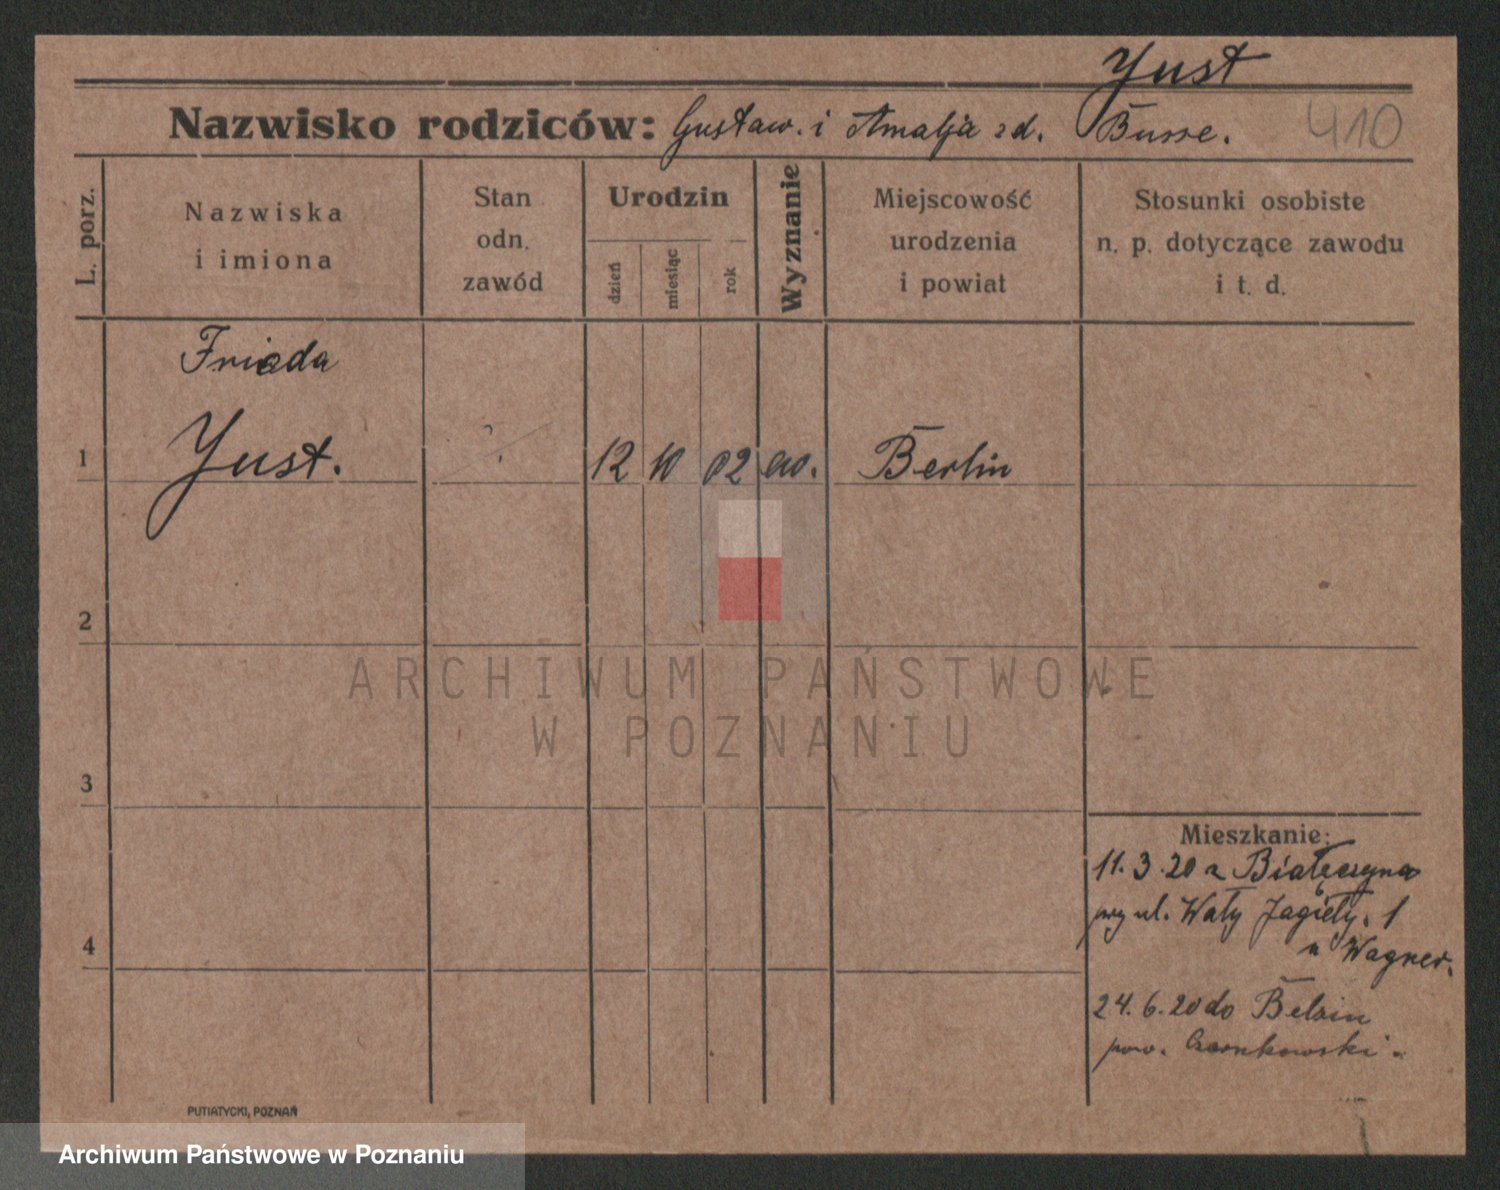 Yust
Nazwisko rodziców: Gustaw. i Amalja zd. Busse. 410
L. porz.
Nazwiska
i imiona
Stan
odn.
zawód
Urodzin
dzień
miesiąc
rok
Wyznanie
Miejscowość
urodzenia
i powiat
Stosunki osobiste
n. p. dotyczące zawodu
i t. d.
Frieda
1 Yust. 12 10 02 Berlin
2
ARCHIWUM PAŃSTWOWE
W POZNANIU
3
Mieszkanie:
11.3.20 z Białęczyna
przy ul. Wały Jagiełły. 1
u Wagner.
4
24.6.20 do Belsin
pow. Czarnkowski.
PUTIATYCKI, POZNAŃ
Archiwum Państwowe w Poznaniu